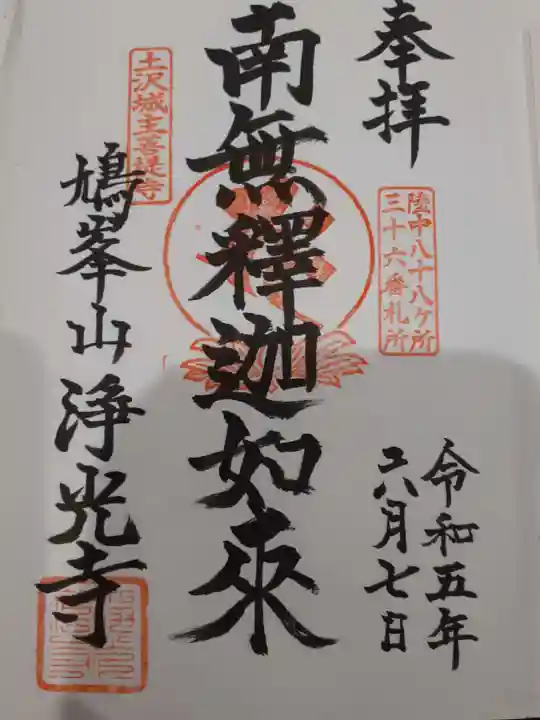 奉拝
陸中八十八ケ所
三十六番札所
令和五年
六月七日
南無釋迦如来
土沢城主菩提寺
鳩峯山浄光寺